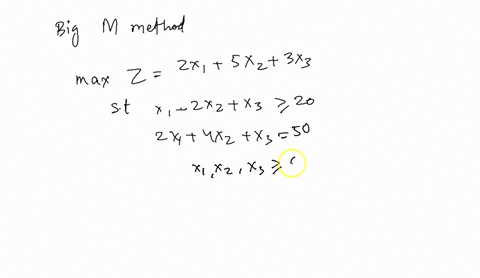 Big M method
max Z = 2x₁ + 5x₂ + 3x₃
s.t x₁ - 2x₂ + x₃ ≥ 20
2x₁ + 4x₂ + x₃ = 50
x₁, x₂, x₃ ≥